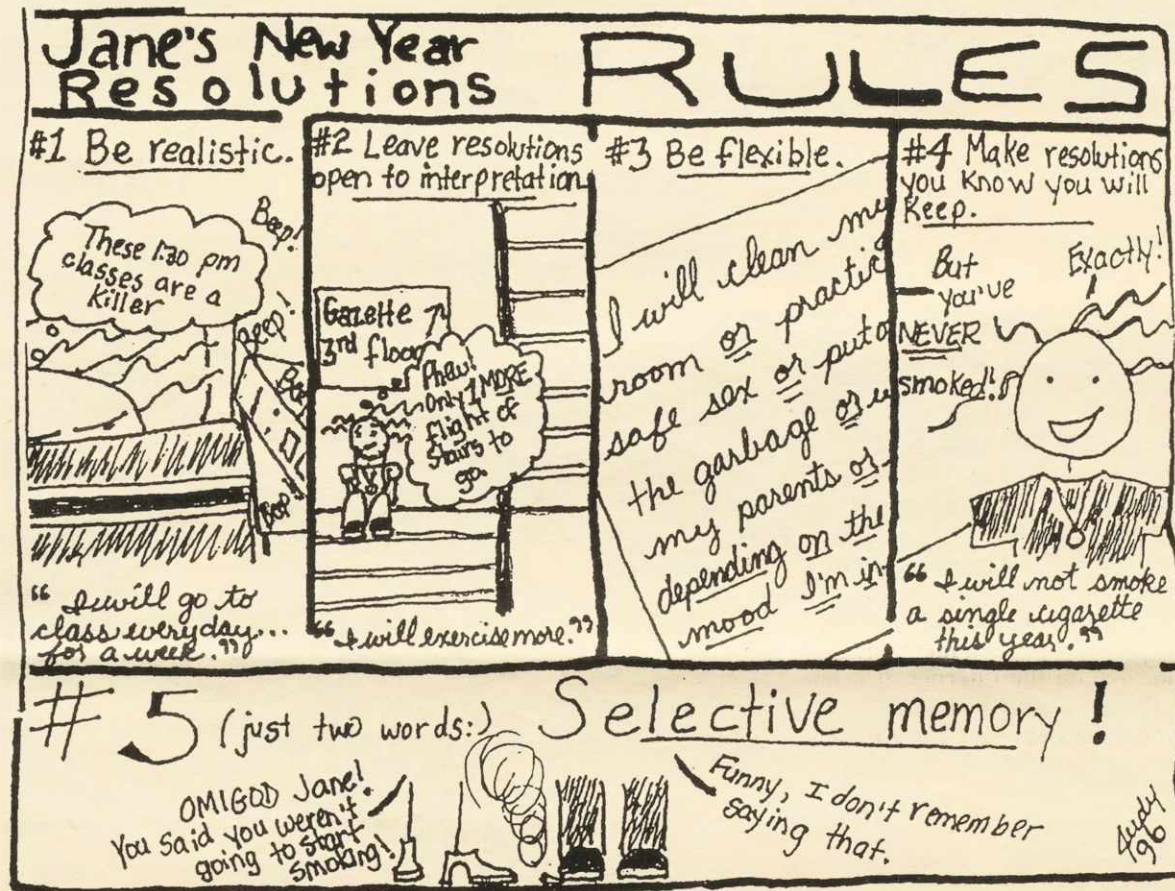 Jane's New Year
Resolutions
RULES
#1 Be realistic.
These 1:30 pm
classes are a
killer
Beep!
Beep!
Bop
"I will go to
class everyday...
for a week."
#2 Leave resolutions
open to interpretation
Gazette
3rd floor
Phew!
Only 1 MORE
flight of
stairs to
go.
"I will exercise more."
#3 Be flexible.
I will clean my
room or practic
safe sex or put o
the garbage or
my parents or
depending on the
mood I'm in
#4 Make resolutions
you know you will
keep.
But
you've
NEVER
smoked!
Exactly!
"I will not smoke
a single cigarette
this year."
#5 (just two words:) Selective memory!
OMIGOD Jane!
You said you weren't
going to start
smoking!
Funny, I don't remember
saying that.
96